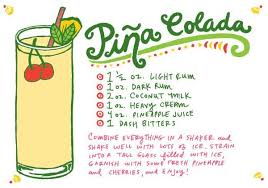 Piña Colada
1 ½ oz. LIGHT RUM
1 oz. DARK RUM
2 oz. COCONUT MILK
1 oz. HEAVY CREAM
4 oz. PINEAPPLE JUICE
1 DASH BITTERS
COMBINE EVERYTHING IN A SHAKER and
SHAKE WELL WITH LOTS OF ICE. STRAIN
INTO A TALL GLASS FILLED WITH ICE,
GARNISH WITH SOME FRESH PINEAPPLE
and CHERRIES, and ENJOY!